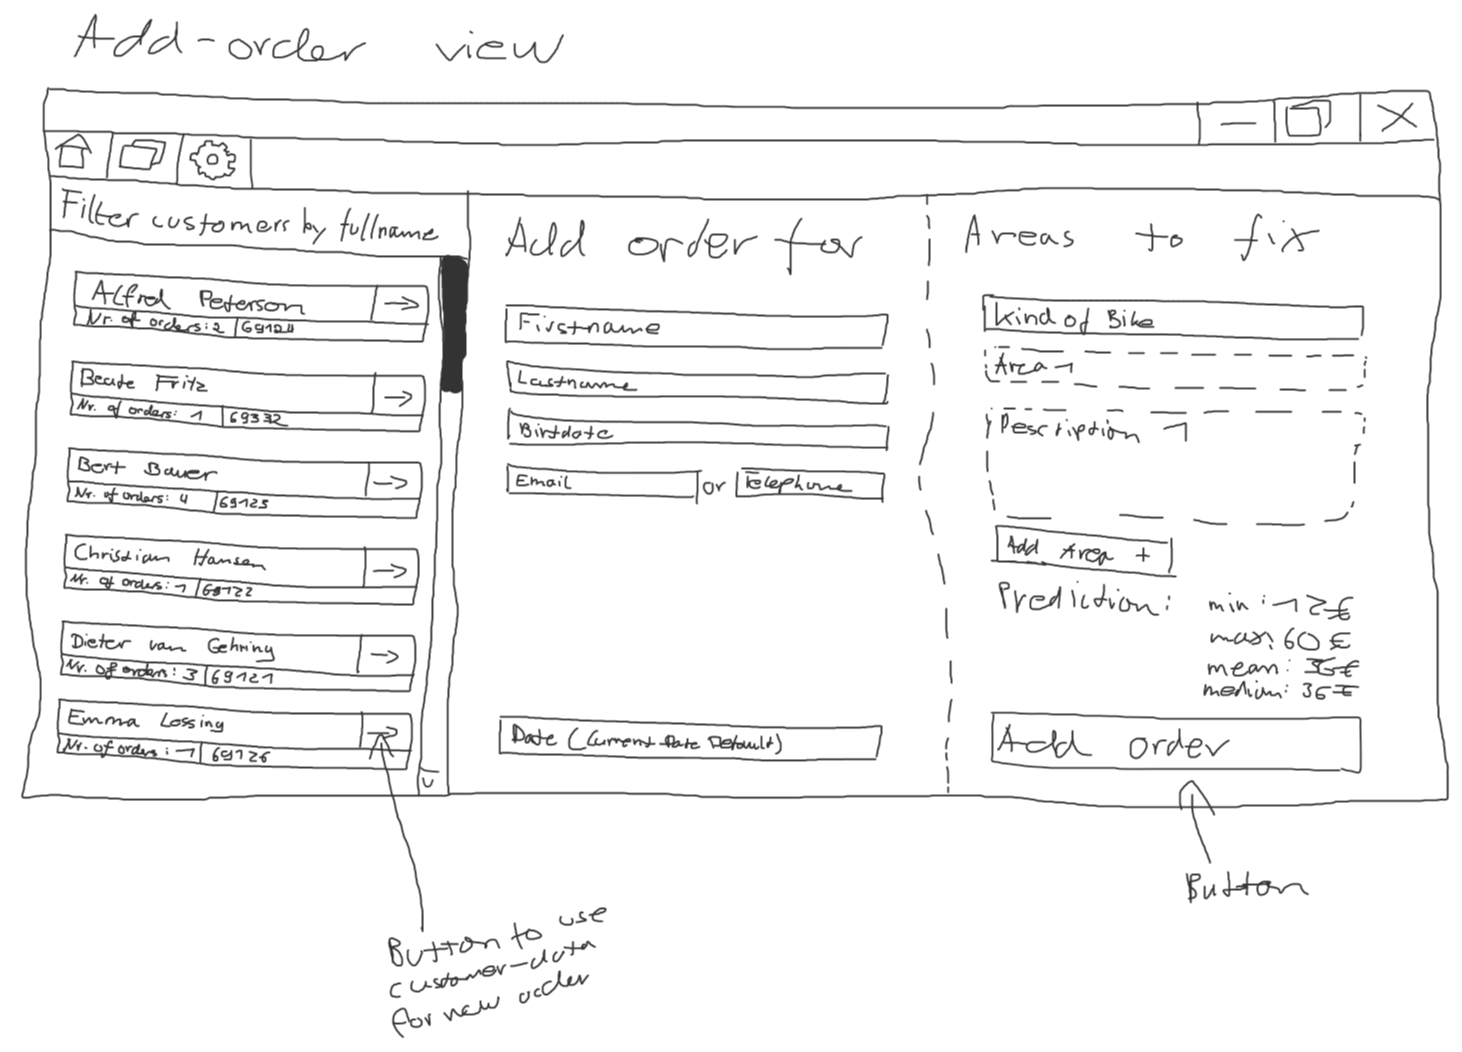 Add-order view
Filter customers by fullname
Alfred Peterson
Nr. of orders: 2 69124
Beate Fritz
Nr. of orders: 1 69332
Bert Bauer
Nr. of orders: 4 69123
Christian Hansen
Nr. of orders: 1 69122
Dieter van Gehring
Nr. of orders: 3 69121
Emma Lossing
Nr. of orders: 1 69126
Add order for
Firstname
Lastname
Birtdate
Email or Telephone
Date (Current Date Default)
Areas to fix
Kind of Bike
Area 1
Description 1
Add Area +
Prediction: min: 12€
max: 60€
mean: 36€
median: 36€
Add order
Button to use
customer-data
for new order
Button